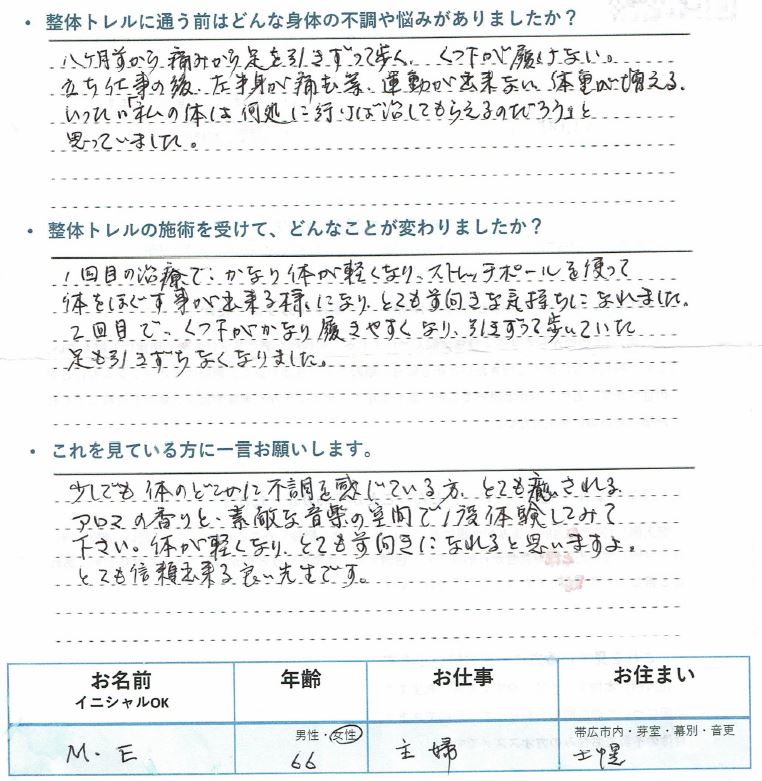 ・ 整体トレルに通う前はどんな身体の不調や悩みがありましたか？
八ケ月前から痛みから足を引きずって歩く、くつ下が履けない。
立ち仕事の後、左半身が痛む等、運動が出来ない、体重が増える、
いったい「私の体は何処に行けば治してもらえるのだろう」と
思っていました。
・ 整体トレルの施術を受けて、どんなことが変わりましたか？
1回目の治療で、かなり体が軽くなり、ストレッチポールを使って
体をほぐす事が出来る様になり、とても前向きな気持ちになれました。
2回目で、くつ下がかなり履きやすくなり、引きずって歩いていた
足も引きずらなくなりました。
・ これを見ている方に一言お願いします。
少しでも体のどこかに不調を感じている方、とても癒される
アロマの香りと、素敵な音楽の空間で1度体験してみて
下さい。体が軽くなり、とても前向きになれると思いますよ。
とても信頼出来る良い先生です。
お名前 年齢 お仕事 お住まい
イニシャルOK
男性・女性 帯広市内・芽室・幕別・音更
M・E 66 主婦 士幌